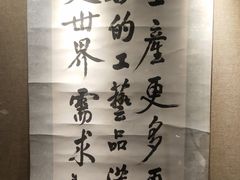 生產更多更
的工藝品滿
世界需求